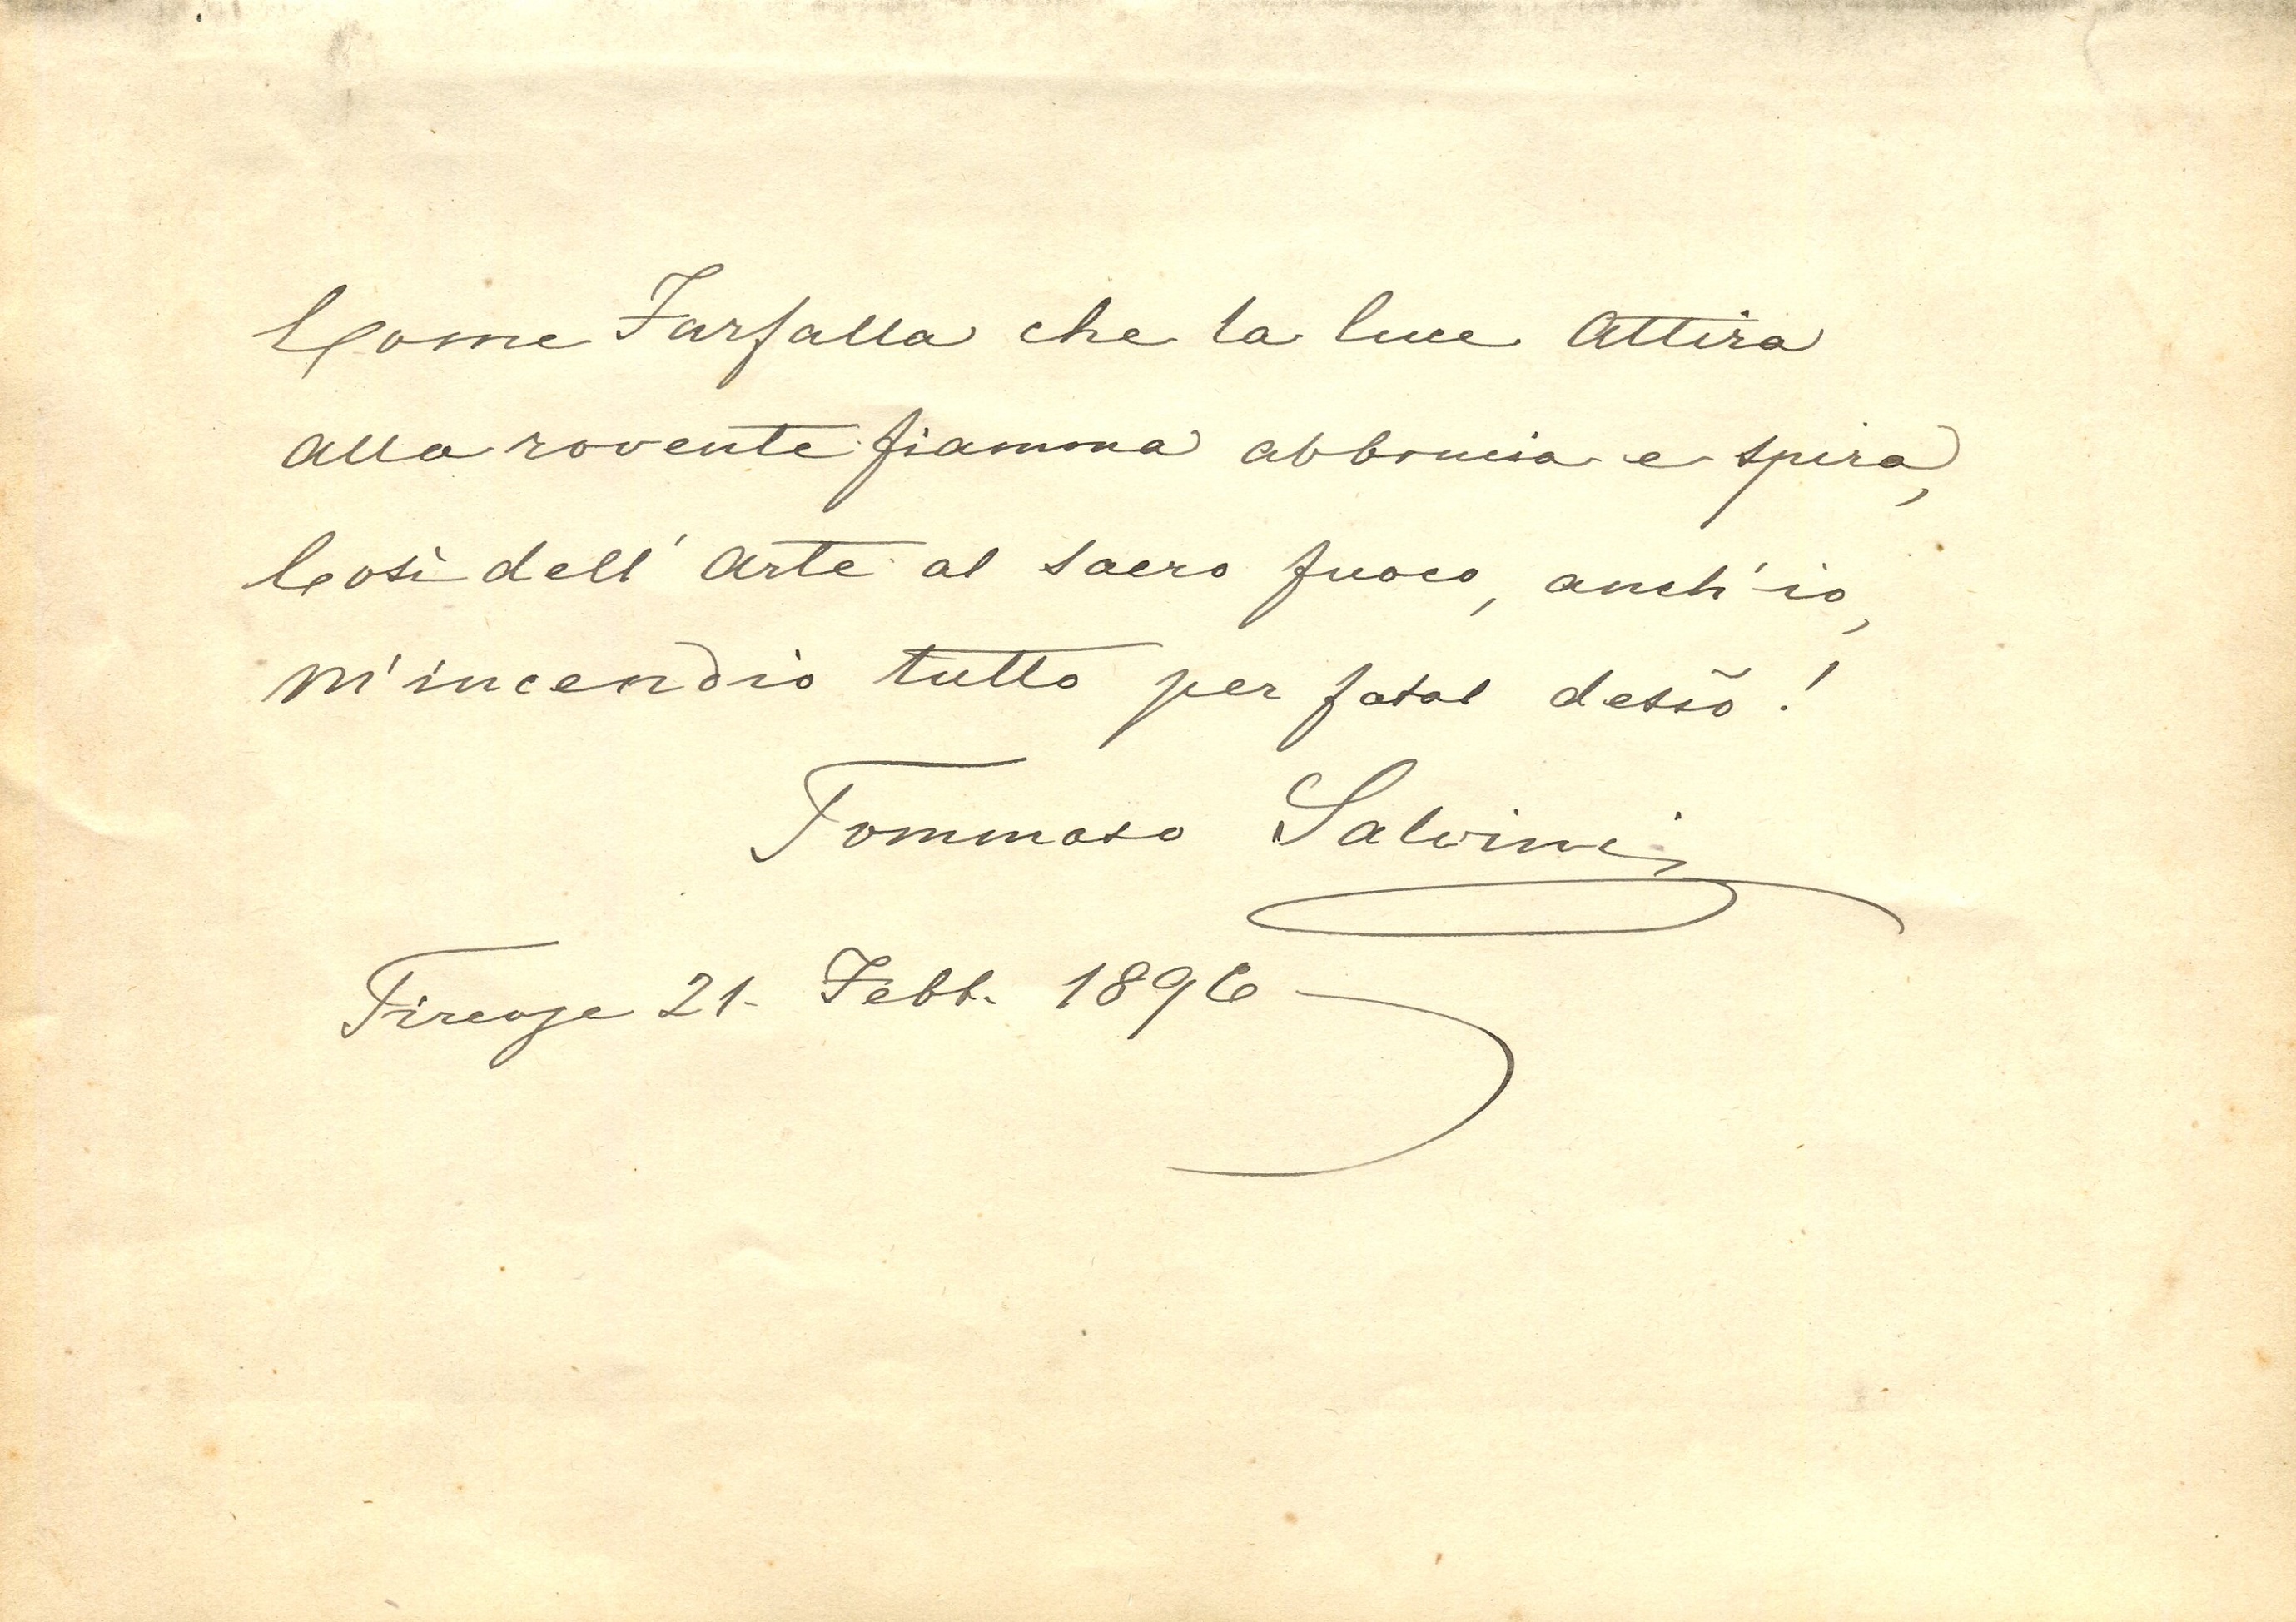 Come Farfalla che la luce attira
alla rovente fiamma abbrucia e spira,
Così dell' arte al sacro fuoco, anch'io,
M'incendio tutto per fatal desio!
Tommaso Salvini
Firenze 21. Febb. 1896